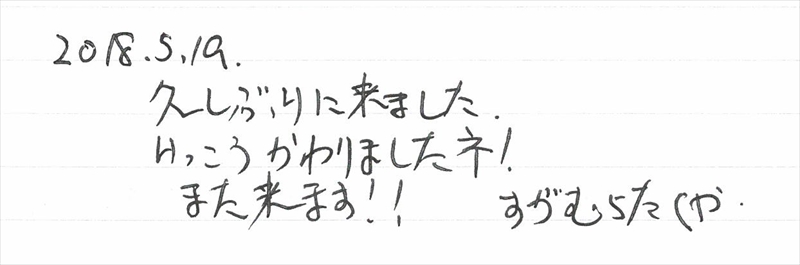 2018.5.19.
久しぶりに来ました.
けっこうかわりましたネ!
また来ます!! すがむらたくや.